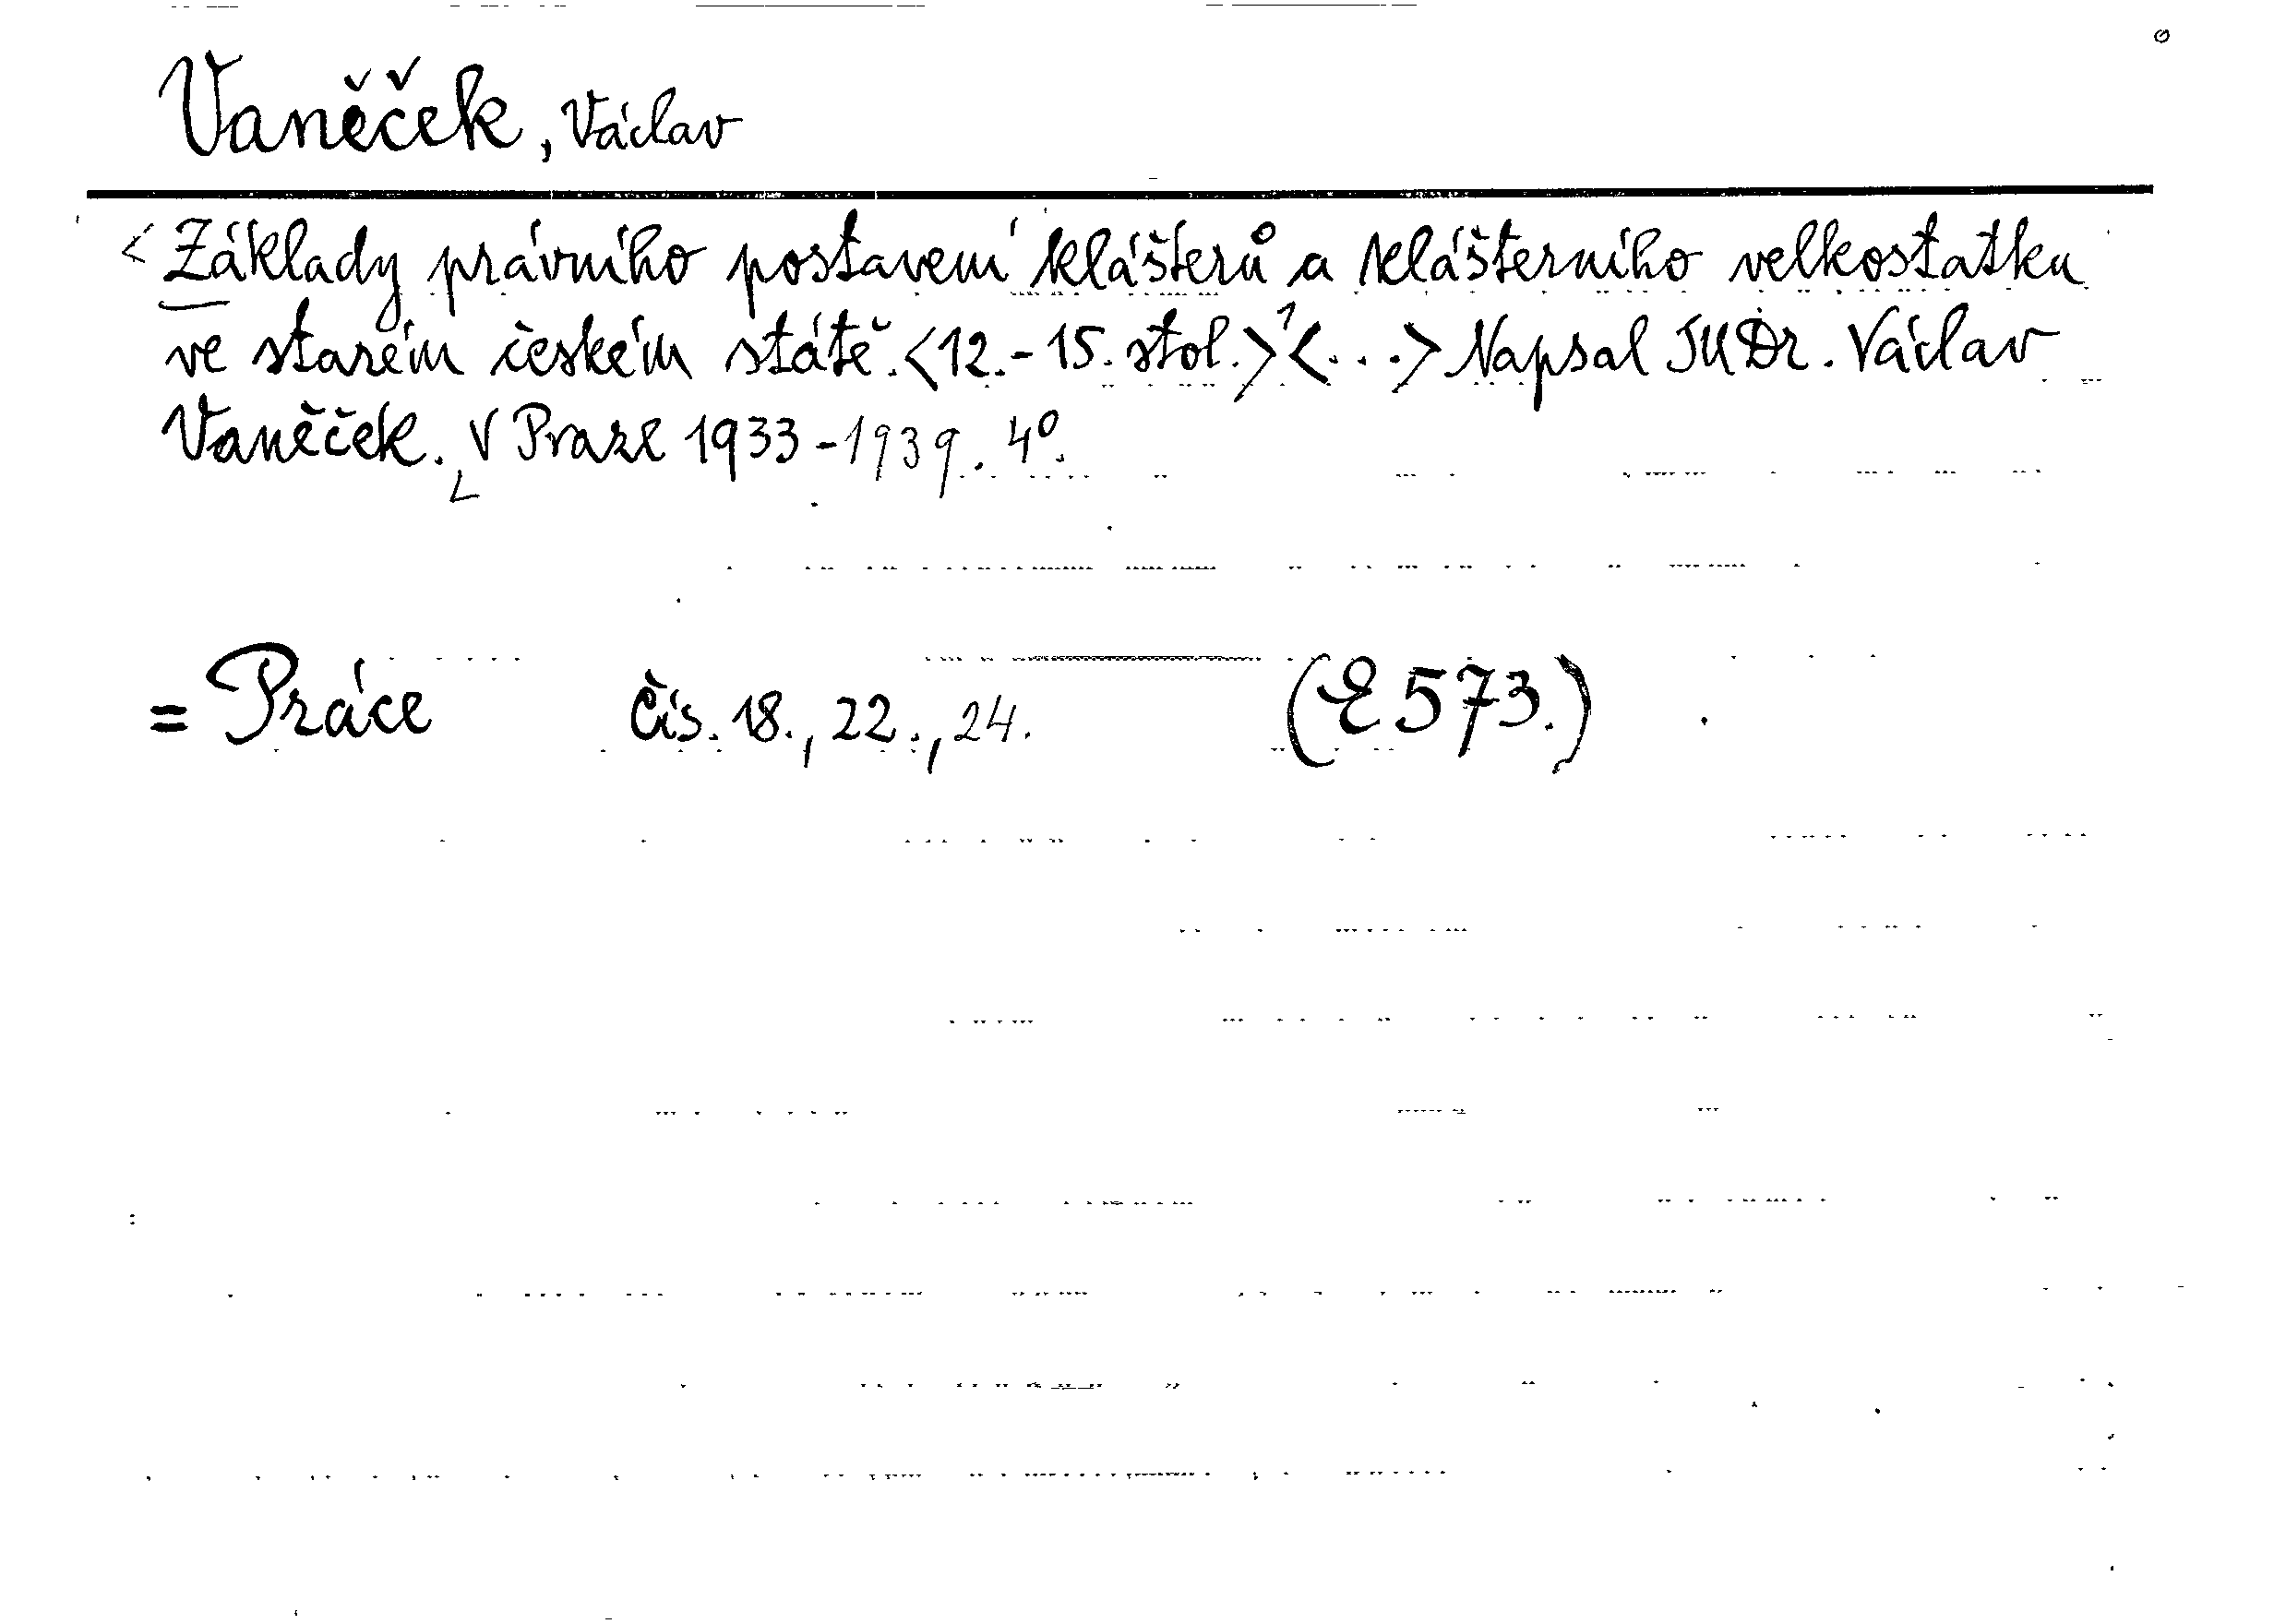 Vaněček, Václav
<Základy právního postavení klášterů a klášterního velkostatku
ve starém českém státě. <12.-15. stol.>¹<...> Napsal JUDr. Václav
Vaněček. V Praze 1933-1939. 4º.
= Práce čís. 18., 22., 24. (E 573.)